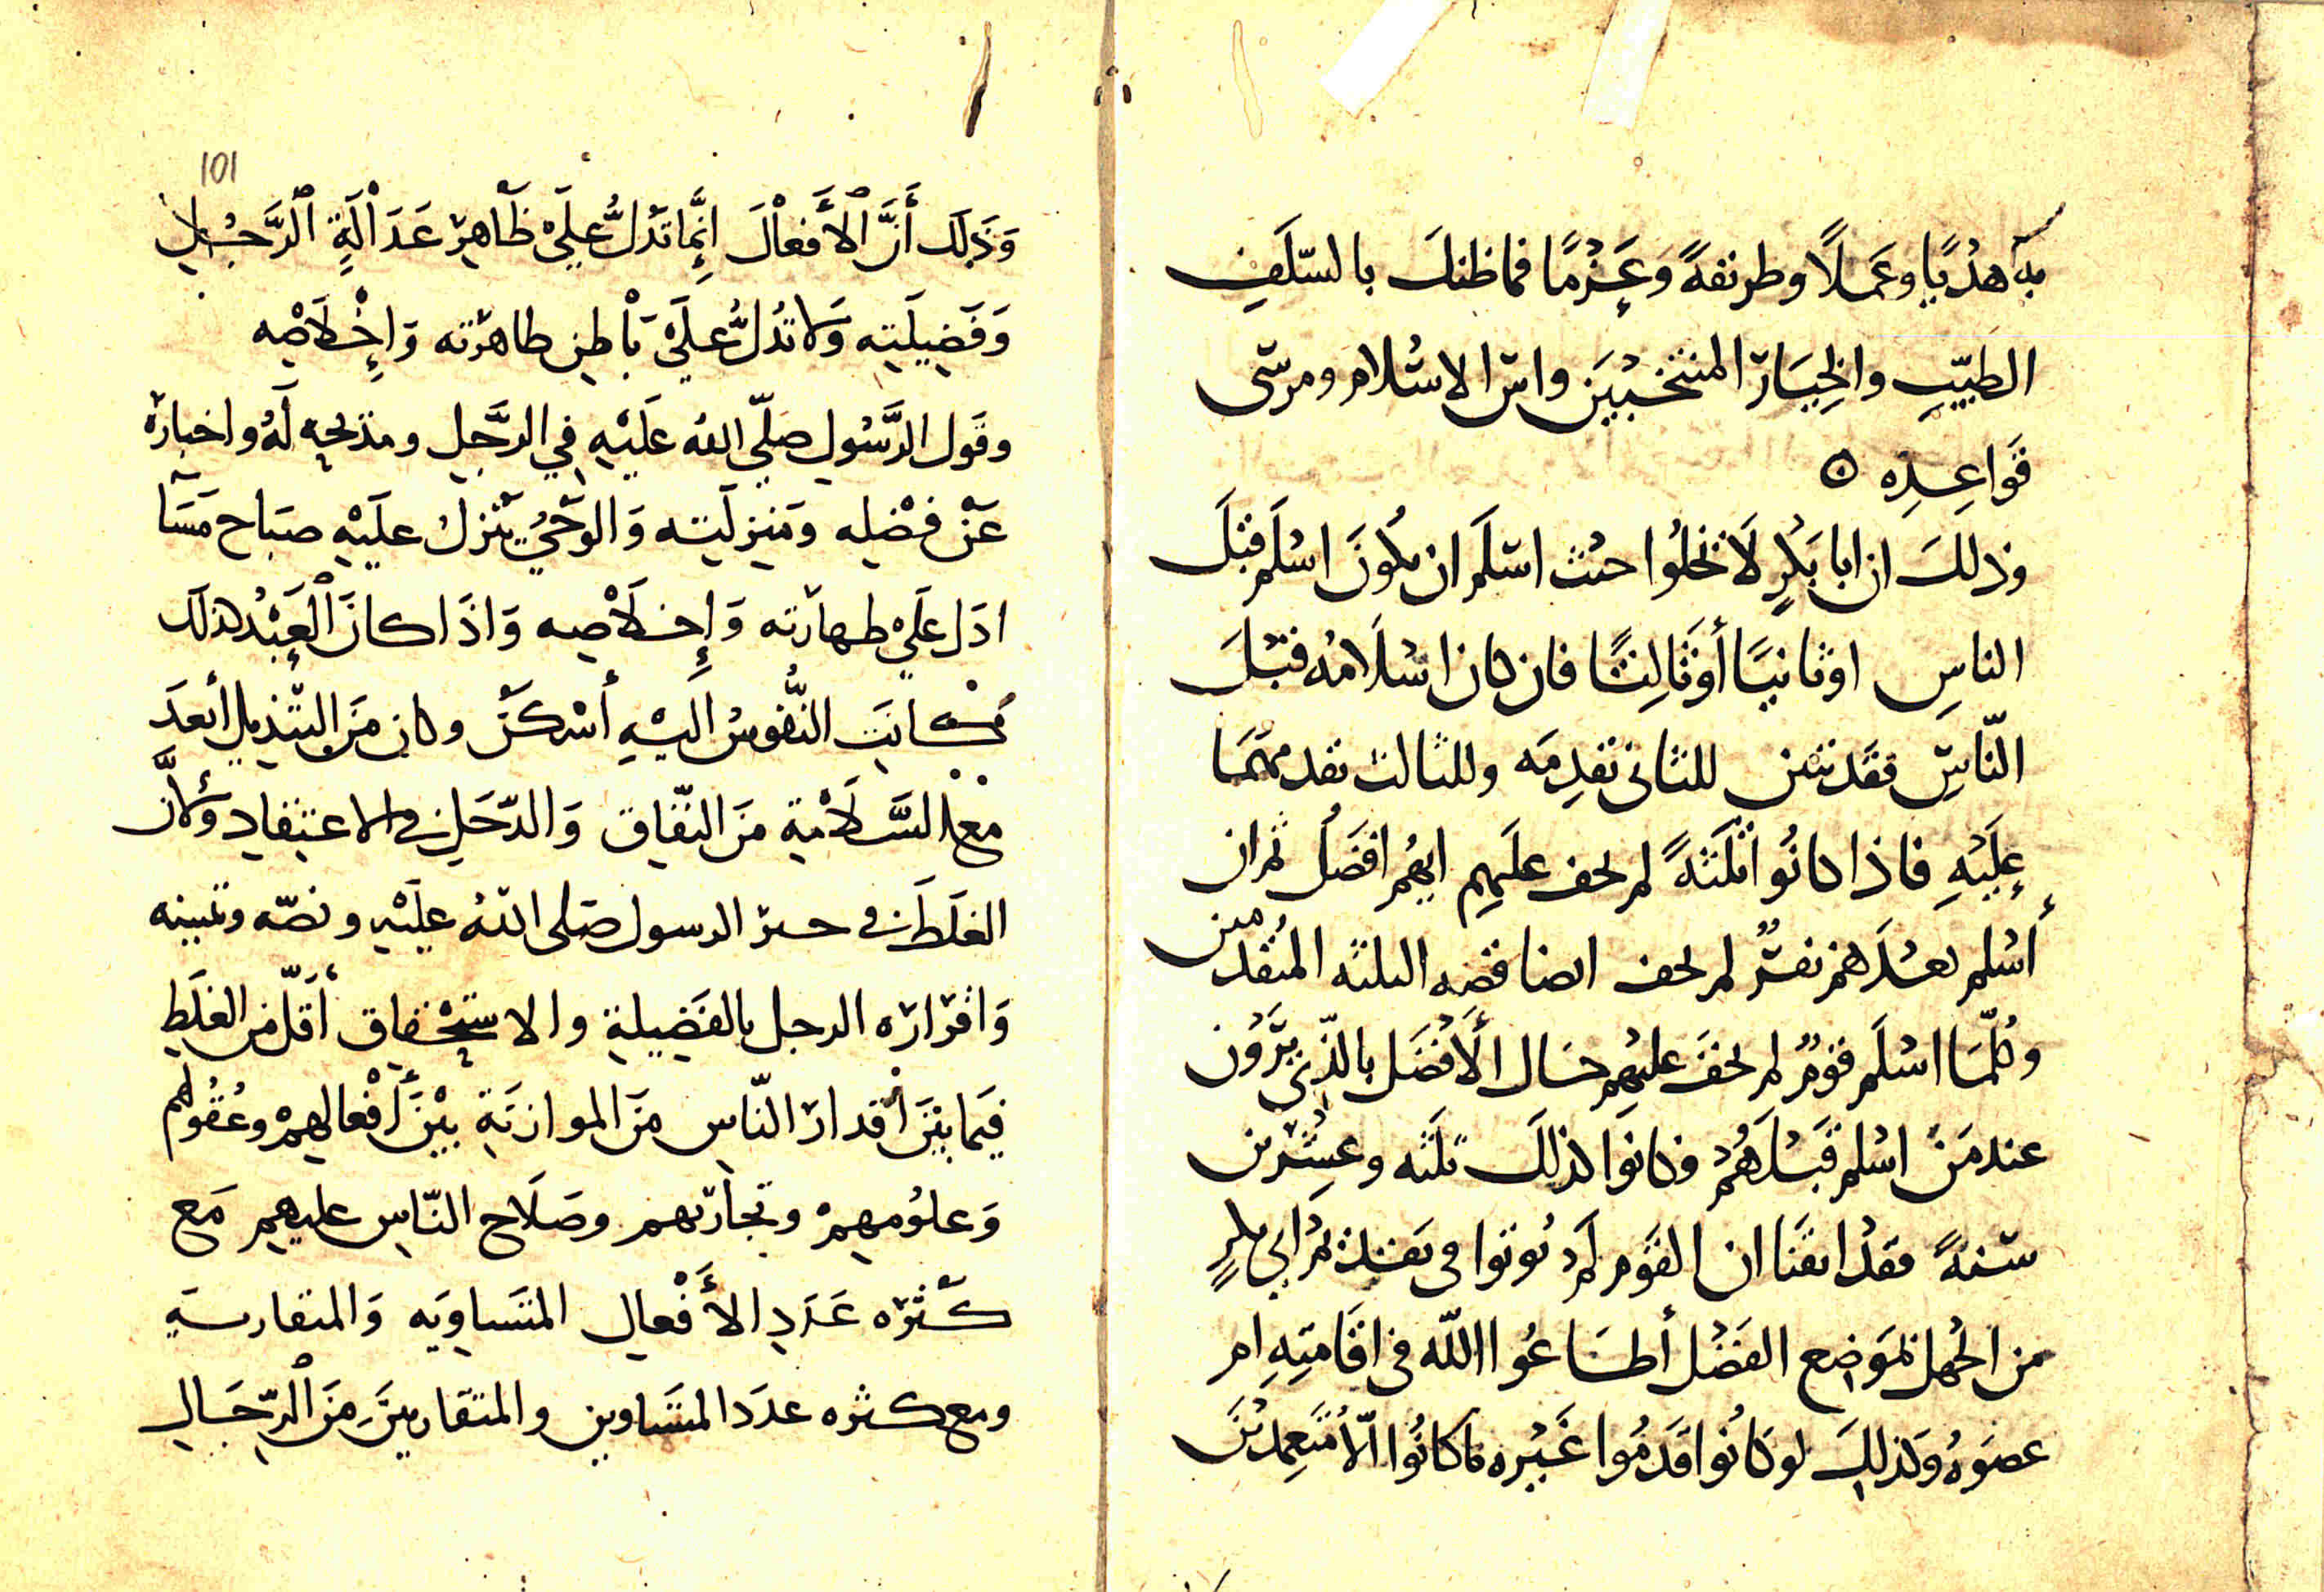 به هديًا وعملًا وطريقةً وعَزمًا فما ظنك بالسّلَفِ
الطيّبِ والخِيَارَ المنتخبين واسّ الاسلام ومرسى
قَواعِدِه ⵙ
وذلكَ ان ابا بَكْرٍ لَا تخلُوا حيْث اسلَم ان يكُونَ اسْلَم قبْلَ
الناسِ او ثانيًا أو ثَالِثًا فان كان اسْلَامُه قبْلَ
النّاسِ فقَد تبين للثانى تقدِمَه وللثالث تقدمهمَا
عليْهِ فاذا كانُوا ثلَثَهً لم يخف علَيهِم ايهُم افضَلُ ثم ان
أسْلم بعْدَهم نفرٌ لم يخف ايضا قصه الثلثه المتقدمين
وكلّمَا اسْلَم قومٌ لم يخفَ عليهِم حَال الأفضَل بالذّى يَرَوْن
عند مَنْ اسْلم قَبْلَهُمْ وكانوا كذلكَ ثلَثه وعِشْرين
سَنهً فقدْ ايقَنا ان القوم لَم يُوتوا فى تقديم ابي بكرٍ
من الجهل بموَضِع الفَضْل أطَاعُوا الله فى اقَامَتِهِ ام
عصَوهُ وكذلكَ لو كانُوا قَدمُوا غَيْره ما كانُوا الّا مُتَعمدينَ
101
وَذَلِك أنَّ الأَفعْالَ إنَّمَا تدُلُّ علَىْ ظَاهِر عَدَالَةِ الرَّجُلِ
وَفَضِيلَتِه وَلا تدُلُّ علَىْ بَاْطِنِ طاهرَته وَإِخْلَاصْه
وقَول الرَّسُول صَلّى اللهُ علَيْهِ فِي الرجَّلِ ومَدْحِه لَهُ واخبارَه
عَنْ فضْلِه ومَنِزلَتِه وَالوَحْيُ يَنْزِل علَيْهِ صبَاح مَسَآ
ادَل علَىْ طهارَته وَإِخلَاصِه وَاذَا كانَ الْعَبْدُ كذلك
كَانَت النُّفوسُ اليْهِ أسْكَنَ وكان مَن التبْديل أبعَدَ
مَعَ السَّلَامَة مَن النّفاقِ وَالدّخَلِ فى الاعتِقادِ وَلأنَّ
الغلَطَ فى خبر الرسول صَلى اللهُ علَيْهِ ونصّه وتبيينه
وَاقرَارَه الرجل بالفَضِيلة والاستِحْقاقِ أقَلّ من الغلَطِ
فيمَا بيْنَ أقدارَ النّاسِ مَن الموازنَةِ بيْنَ أَفْعالِهِمْ وعُقُولهم
وَعلُومِهِمْ وتجارَبهم وصَلَاح النّاسِ عليهِم مَع
كَثْرَه عَدَدِ الأَفْعالِ المتَساوِيَه وَالمتقاربَه
ومع كثره عدَد المتَساوين والمتقَاربينَ مَنَ الرّجَال